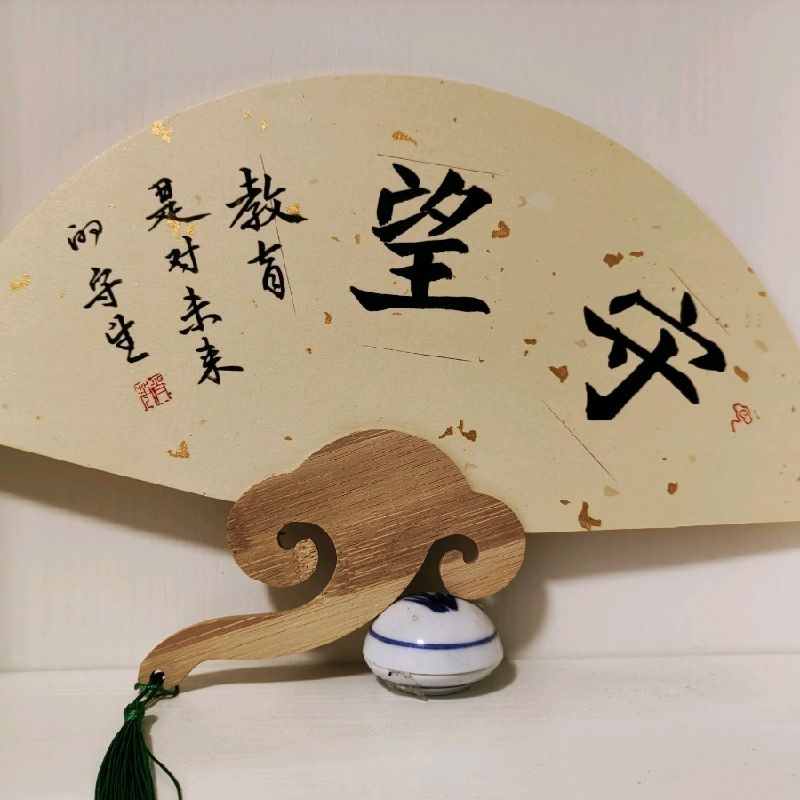 守望
教育
是对未来
的守望